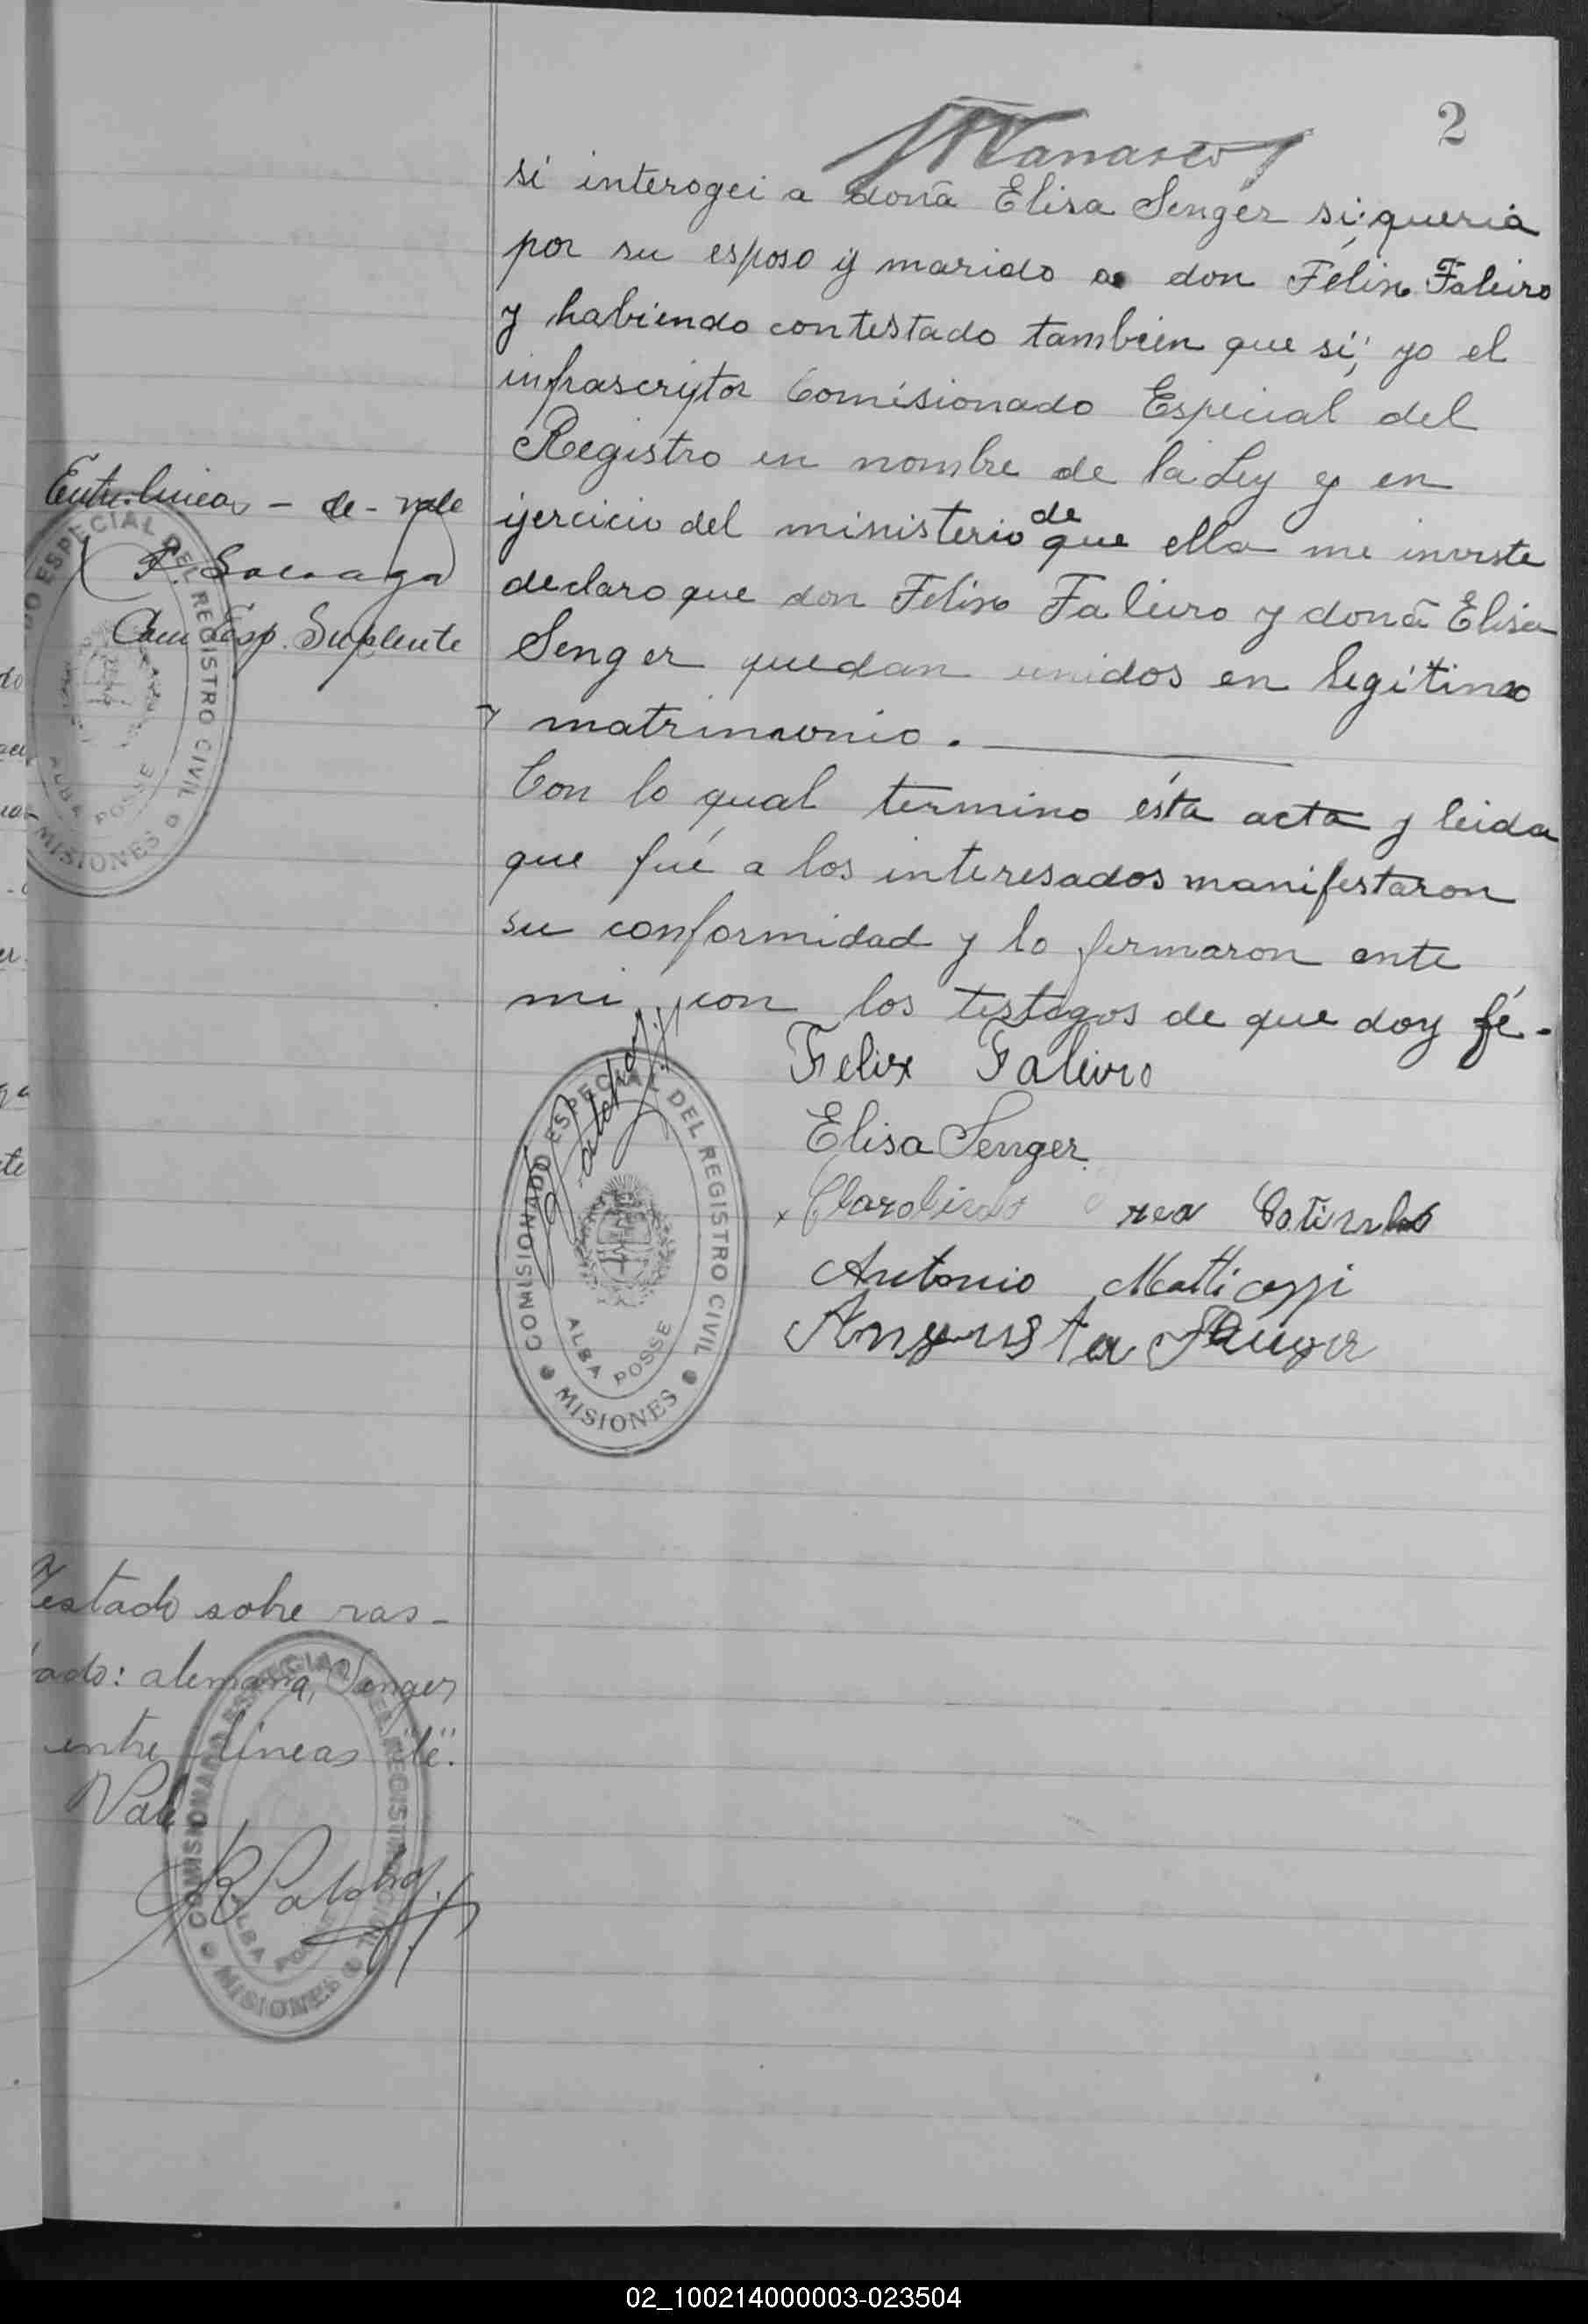 2
si interogei a donã Elisa Senger si queria
por su esposo y marido a don Félix Faleiro
y habiendo contestado tambien que si, yo el
infrascrytor Comisionado Especial del
Registro en nombre de la Ley y en
ijercicio del ministerio de que ella me inviste
declaro que don Felix Faleiro y donã Elisa
Senger quedan unidos en legítimo
matrimonio.
Con lo qual termino ésta acta y leida
que fué a los interesados manifestaron
su conformidad y lo firmaron ante
mi con los testigos de que doy fé.-
Felix Faleiro
Elisa Senger
Antonio
COMISIONADO ESPECIAL DEL REGISTRO CIVIL
ALBA POSSE
MISIONES
Entre lineas - de - vale
Com Esp. Suplente
ESPECIAL DEL REGISTRO CIVIL
ALBA POSSE
MISIONES
Testado sobre ras-
pado: alemana, Senger
entre lineas "de".
Vale
COMISIONADO ESPECIAL DEL REGISTRO CIVIL
ALBA POSSE
MISIONES
02_100214000003-023504